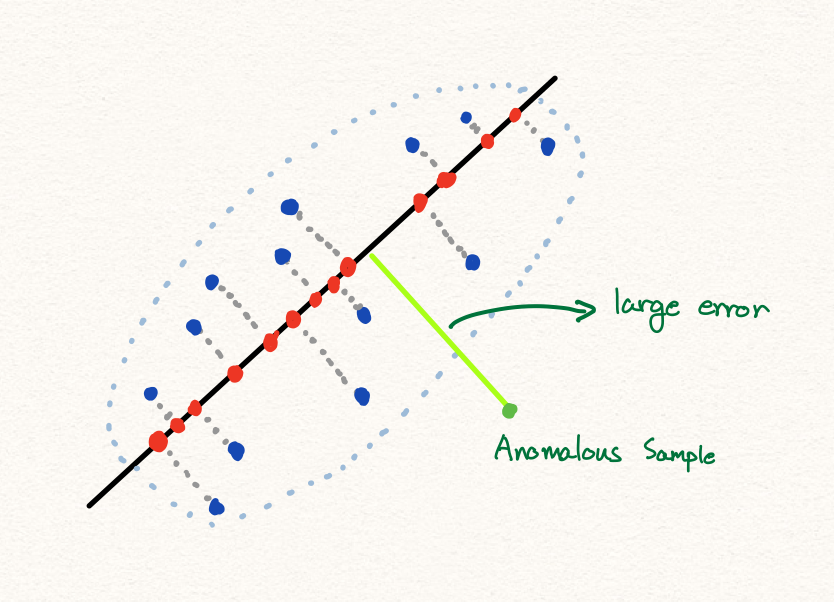 large error
Anomalous Sample